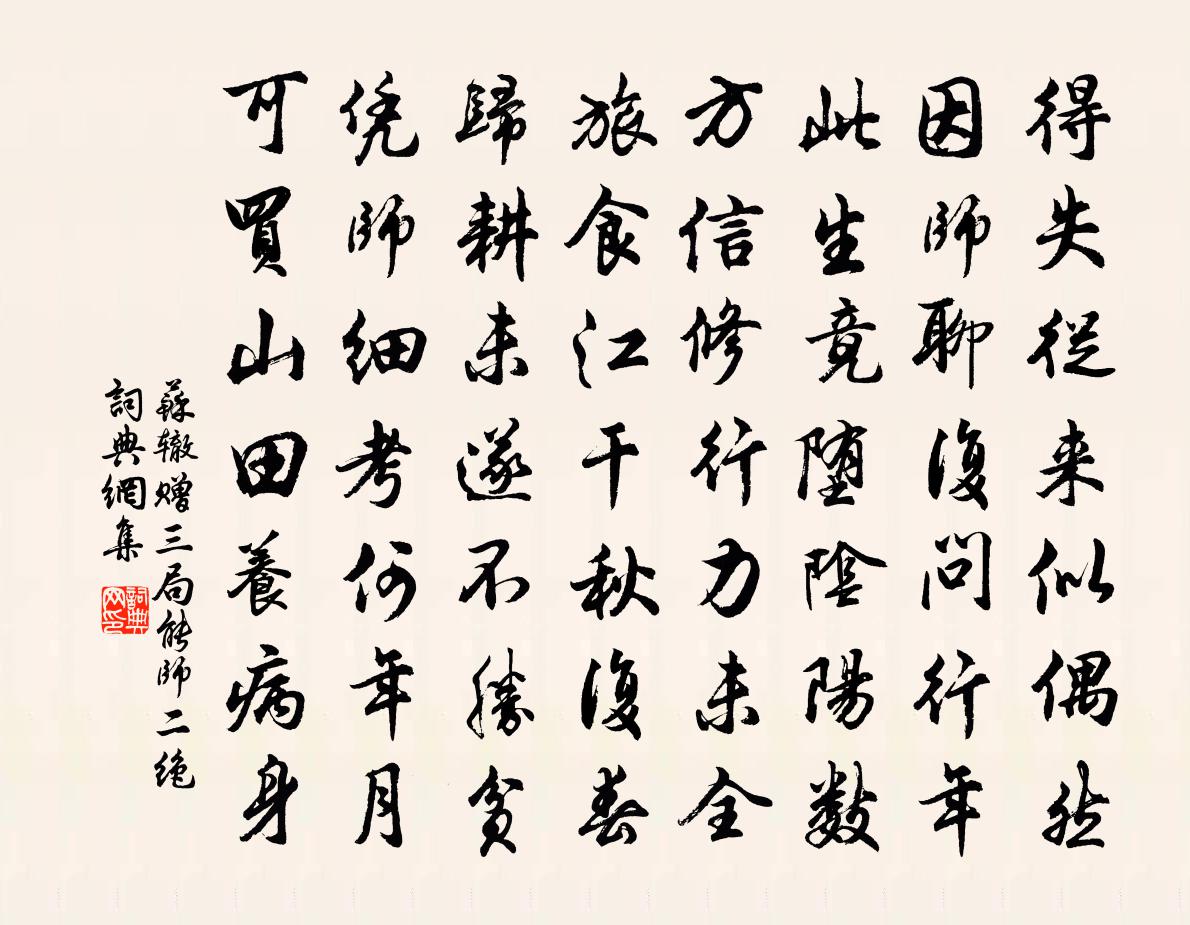 得失從来似偶然
因師聊復問行年
此生竟堕陰陽數
方信修行力未全
旅食江干秋復春
歸耕未遂不勝貧
凭師細考何年月
可買山田養病身
蘇辙赠三局能師二绝
詞典網集
詞典网印